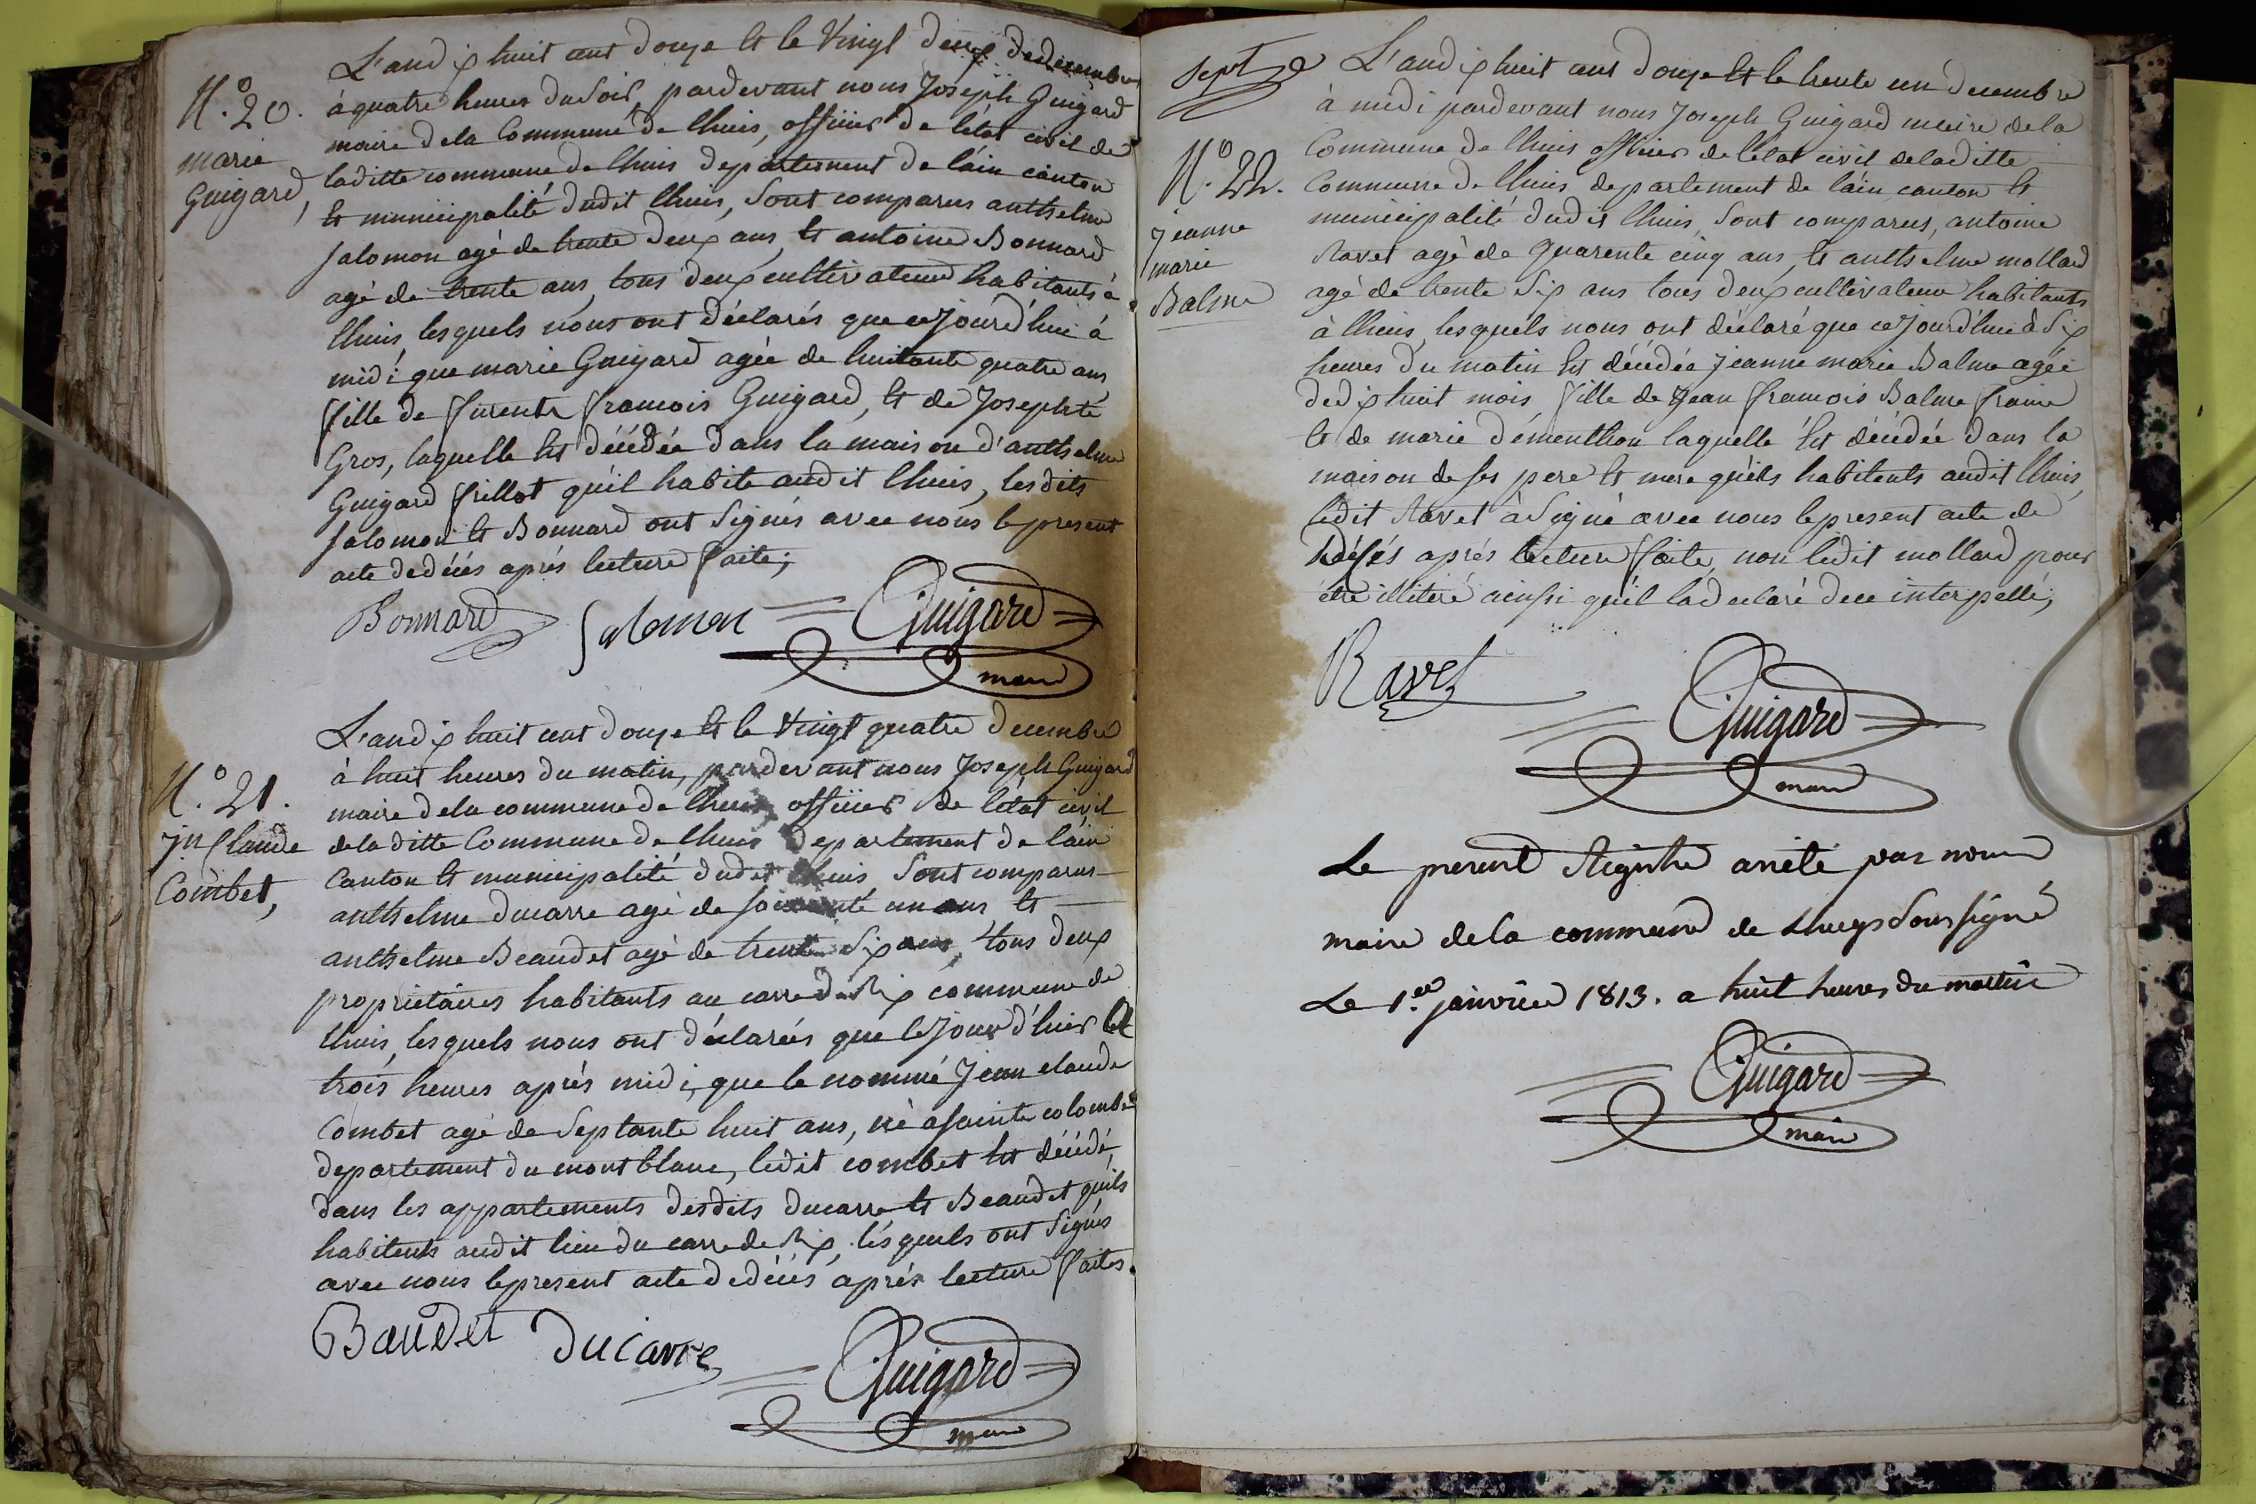 N.o 20.
marie
Guigard,
L'an dix huit cent douze et le vingt deux de decembre
à quatre heures du soir, pardevant nous Joseph Guigard
maire de la Commune de lhuis, officier de l'état civil de
laditte commune de lhuis departement de l'ain canton
et municipalité dudit lhuis, sont comparus anthelme
salomon agé de trente deux ans, et antoine Bonnard
agé de trente ans, tous deux cultivateurs habitants à
lhuis, lesquels nous ont déclarés que cejourd'hui à
midi que marie Guigard agée de huitante quatre ans
fille de François Guigard, et de Josephte
Gros, laquelle est décédée dans la maison d'anthelme
Guigard frillot qu'il habite audit lhuis, lesdits
salomon et Bonnard ont signés avec nous le present
acte de décés aprés lecture faite;
Bonnard Salomon Guigard
maire
N.o 21.
Jn Claude
Combet,
L'an dix huit cent douze et le vingt quatre decembre
à huit heures du matin, pardevant nous Joseph Guigard
maire de la commune de lhuis officier de l'état civil
de la ditte Commune de lhuis departement de l'ain
Canton et municipalité dudit lhuis sont comparus
anthelme ducarre agé de soixante un ans, et
anthelme Beaudet agé de trente six ans, tous deux
propriétaires habitants au carre de Rix commune de
lhuis, lesquels nous ont déclarés que le jour d'hier à
trois heures aprés midi, que le nommé Jean claude
Combet agé de septante huit ans, né à sainte colombe
departement du mont blanc, ledit combet est décédé,
dans les appartements desdits ducarre et Beaudet qu'ils
habitent audit lieu du carre de Rix, lésquels ont signés
avec nous le present acte de décés aprés lecture faites.
Baudet ducarre Guigard
maire
sept
N.o 22.
jeanne
marie
Balme
L'an dix huit cent douze et le trente un decembre
à midi pardevant nous Joseph Guigard maire de la
Commune de lhuis officier de l'état civil de laditte
Commune de lhuis departement de l'ain canton et
municipalité dudit lhuis, sont comparus, antoine
Ravet agé de quarente cinq ans, et anthelme mollard
agé de trente six ans tous deux cultivateurs habitants
à lhuis, lesquels nous ont déclaré que cejourd'hui à six
heures du matin est décédée jeanne marie Balme agée
de dix huit mois fille de Jean François Balme
et de marie démenthon laquelle est décédée dans la
maison de ses pere et mere qu'ils habitents audit lhuis,
ledit Ravet à signé avec nous le present acte de
décés aprés lecture faite, non ledit mollard pour
étre illiteré ainsi qu'il la declaré de ce interpellé;
Ravet
Guigard
maire
Le present Registre arrêté par nous
maire de la commune de Lhuys Soussigné
Le 1.er janvier 1813. a huit heures du mattin
Guigard
maire